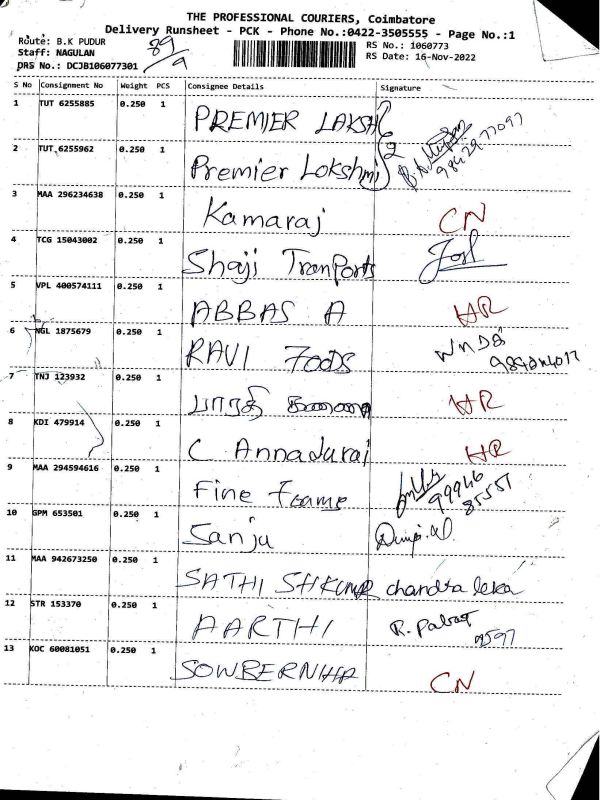 THE PROFESSIONAL COURIERS, Coimbatore
Delivery Runsheet - PCK - Phone No.:0422-3505555 - Page No.:1
Route: B.K PUDUR
RS No.: 1060773
Staff: NAGULAN
RS Date: 16-Nov-2022
DRS No.: DCJB106077301
89/9
S No Consignment No Weight PCS Consignee Details Signature
1 TUT 6255885 0.250 1 PREMIER LAKSH
2 TUT 6255962 0.250 1 Premier Lokshmi 2 98429 77097
3 MAA 296234638 0.250 1 Kamaraj CN
4 TCG 15043002 0.250 1 Shaji Tranports
5 VPL 400574111 0.250 1 ABBAS A HR
6 NGL 1875679 0.250 1 RAVI FOODS
7 TNJ 123932 0.250 1 பாரதி HR
8 KDI 479914 0.250 1 C Annadurai HR
9 MAA 294594616 0.250 1 Fine Foams 99946 85551
10 GPM 653501 0.250 1 Sanju
11 MAA 942673250 0.250 1 SATHI chandra leka
12 STR 153370 0.250 1 AARTHI R.
13 KOC 60081051 0.250 1 SOWBERNIHA CN